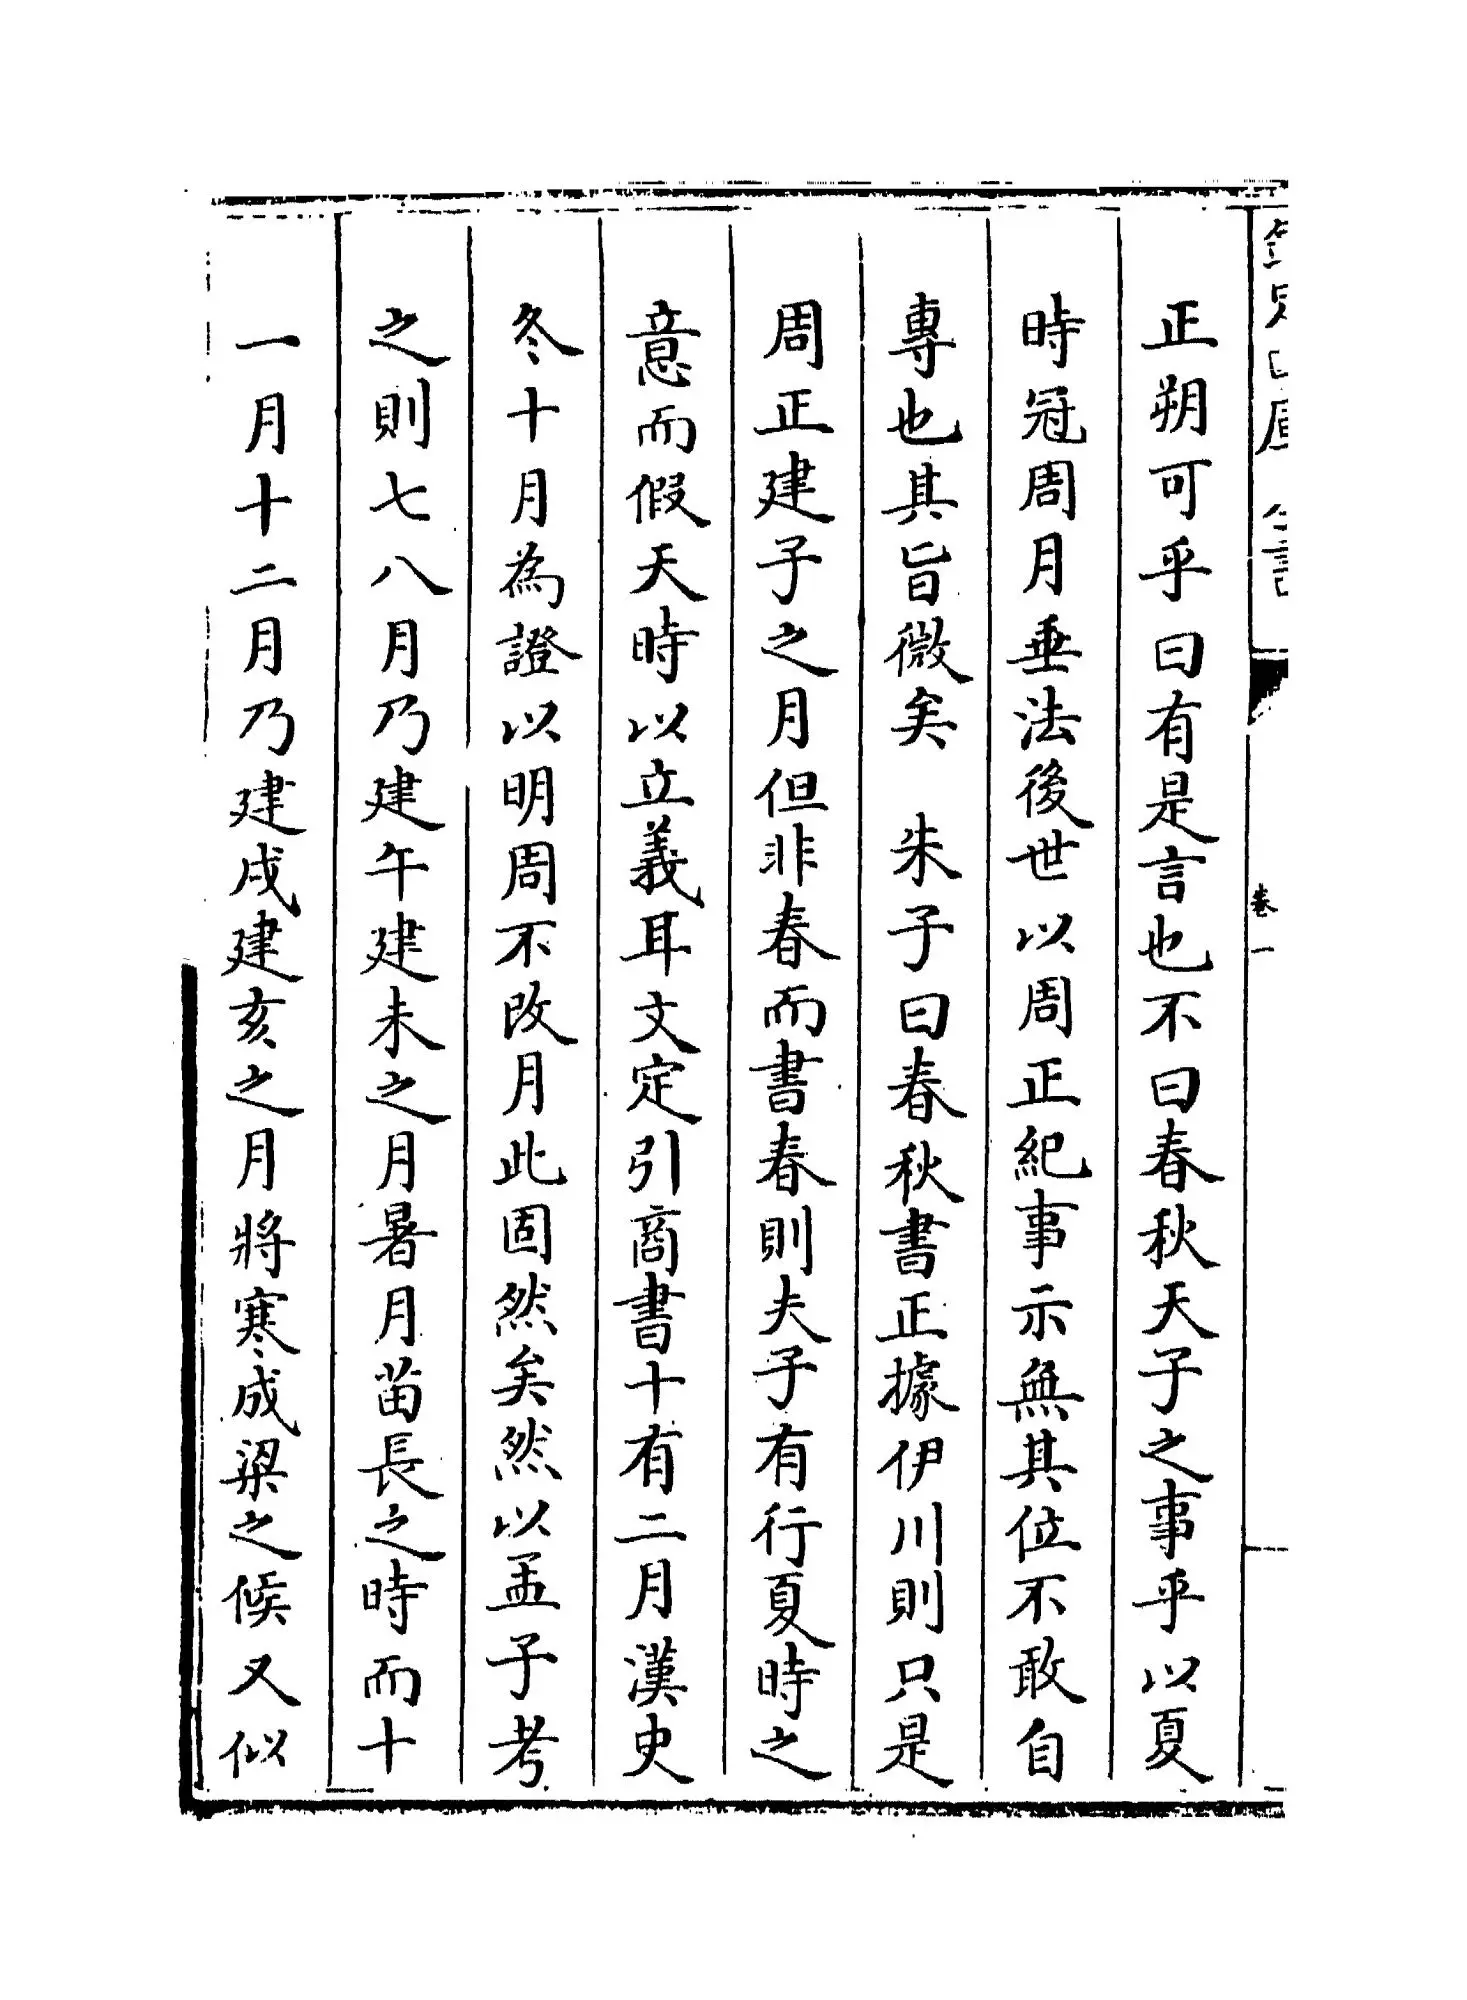 欽定四庫全書
卷一
正朔可乎曰有是言也不曰春秋天子之事乎以夏
時冠周月垂法後世以周正紀事示無其位不敢自
專也其旨微矣　朱子曰春秋書正據伊川則只是
周正建子之月但非春而書春則夫子有行夏時之
意而假天時以立義耳文定引商書十有二月漢史
冬十月為證以明周不改月此固然矣然以孟子考
之則七八月乃建午建未之月暑月苗長之時而十
一月十二月乃建戌建亥之月將寒成梁之候又似